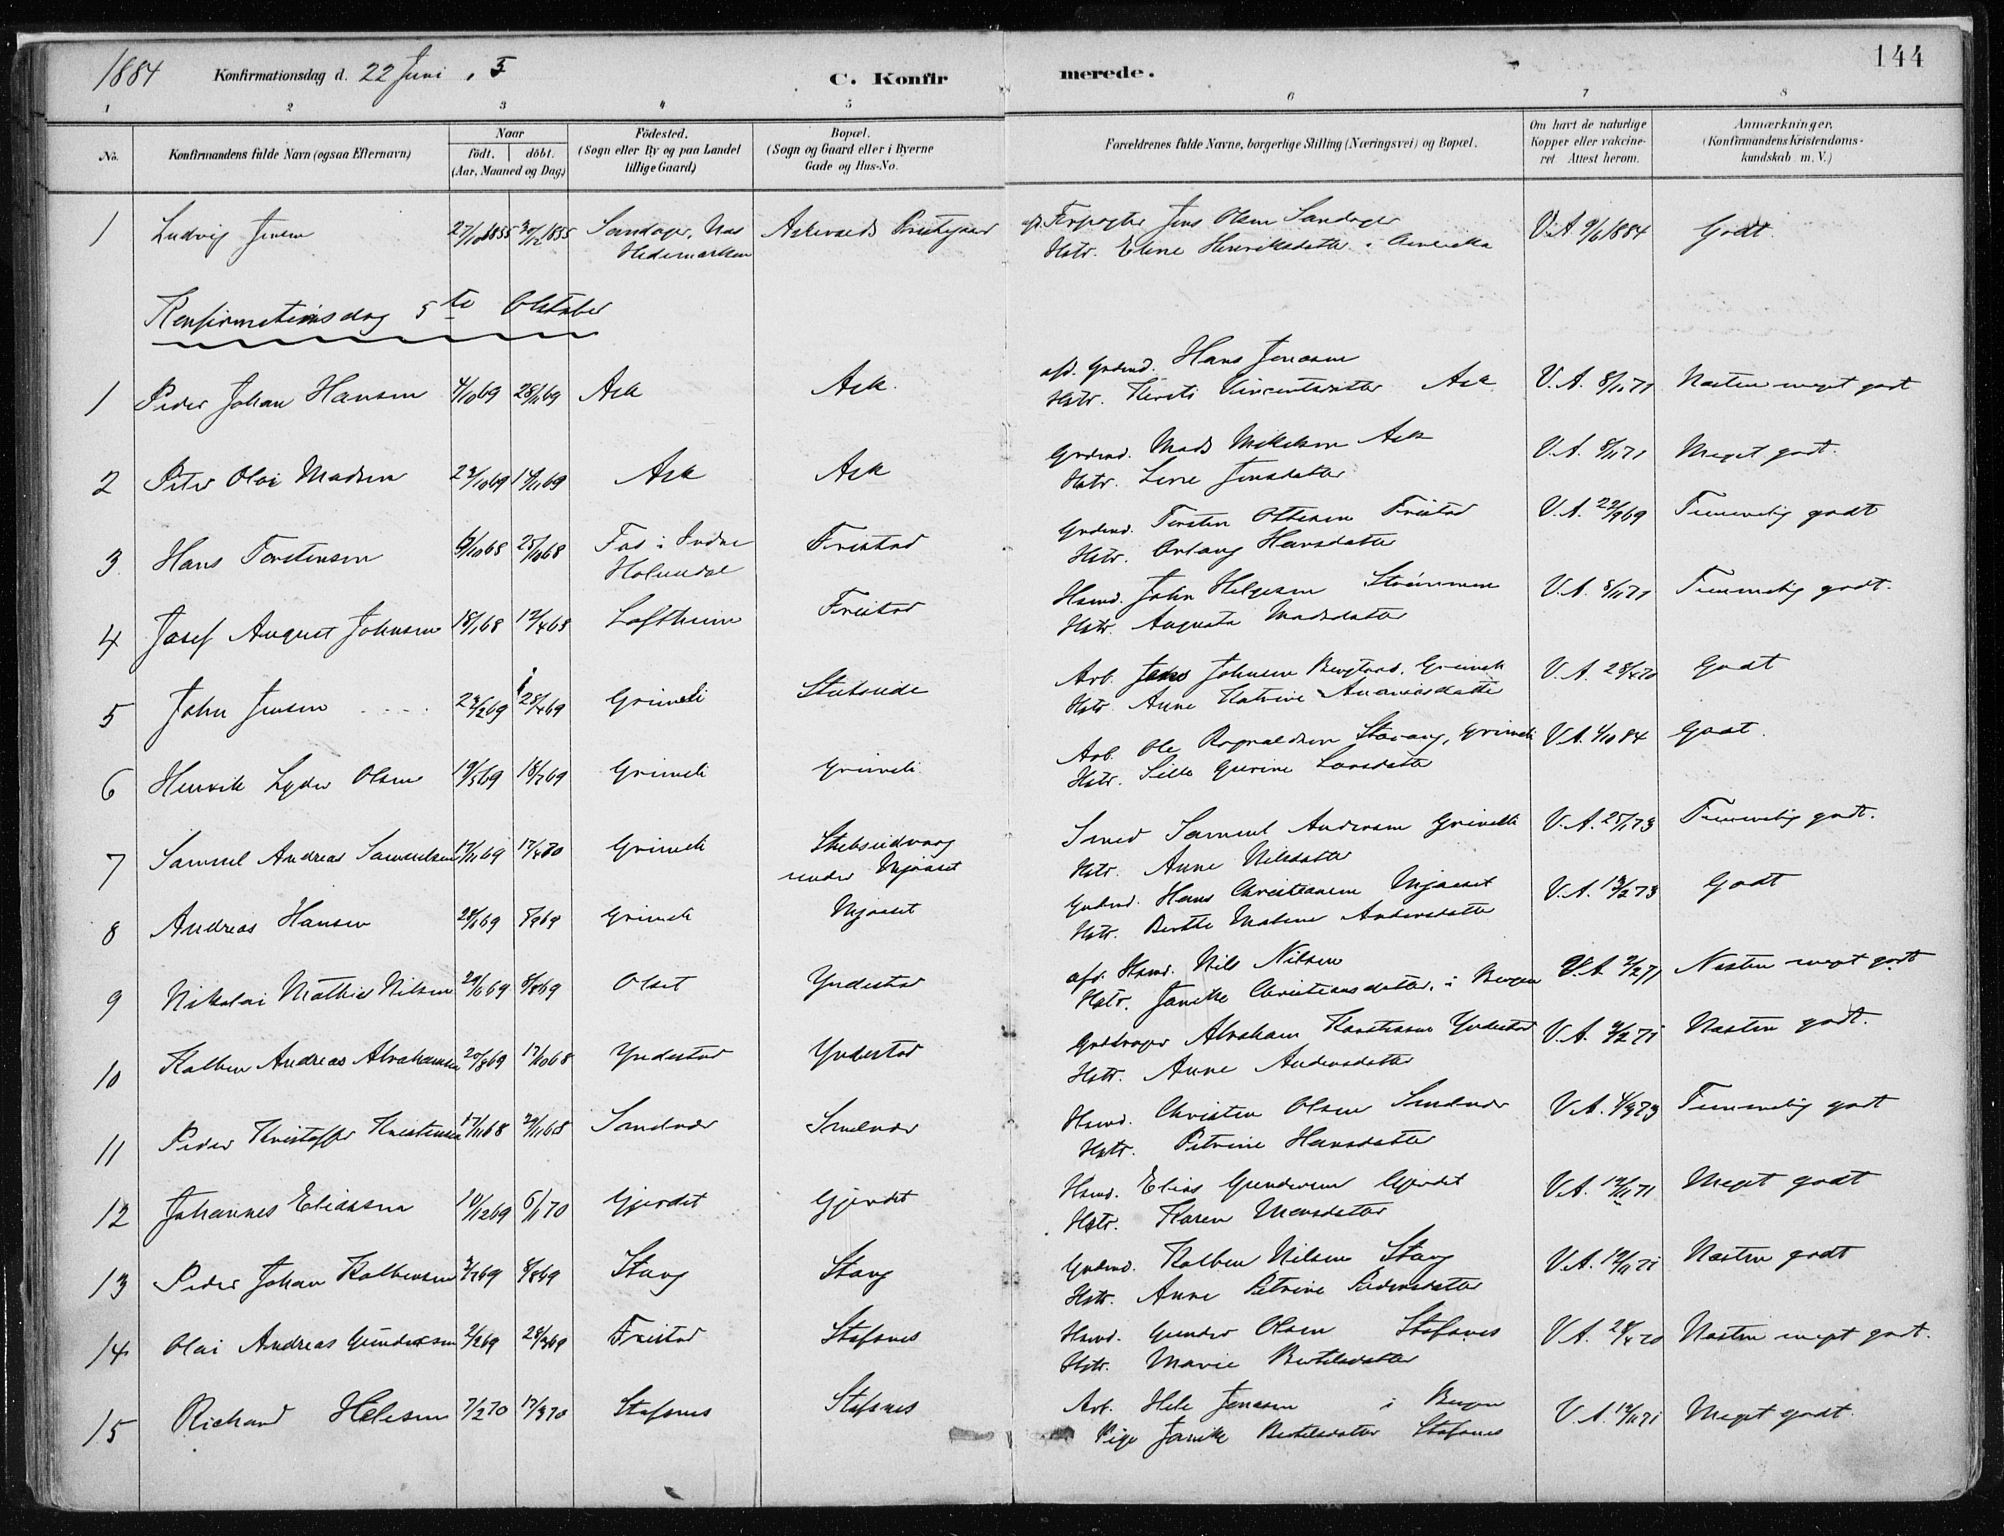 1884 Konfirmationsdag d. 22 Juni C. Konfirmerede. 144
1 2 3 4 5 6 7 8
No.
Konfirmandens fulde Navn (ogsaa Efternavn)
Naar
født. døbt.
(Aar, Maaned og Dag)
Födested.
(Sogn eller By og paa Landet
tillige Gaard)
Bopæl.
(Sogn og Gaard eller i Byerne
Gade og Hus-No.
Forældrenes fulde Navne, borgerlige Stilling (Næringsvei) og Bopæl.
Om havt de naturlige
Kopper eller vakcine-
ret Attest herom.
Anmærkninger.
(Konfirmandens Kristendoms-
kundskab m. V.)
1 Ludvig Jensen 27/10 1855 Sandager, Nas Askevolds Præstegaard Forpagter Jens Olsen Sandager V.A. 9/6 1884 Godt
Hedemarken Hstr. Eline Henriksdatter i Amerika
Konfirmationsdag 5te Oktober
1 Peder Johan Hansen 4/10 69 28/11 69 Ask Ask afd. Grdmd. Hans Jonassen V.A. 8/11 71 Næsten meget godt
Hstr. Kersti Vincentsdatter Ask
2 Peter Olai Madsen 29/10 69 Ask Ask Grdmd. Mads Mikkelsen Ask V.A. 8/11 71 Meget godt.
Hstr. Lene Jensdatter
3 Hans Torstensen 6/10 68 25/10 68 Fos i Indre Fristad Grdmd. Torsten Ottesen Fristad V.A. 22/9 69 Temmelig godt
Holmedal Hstr. Hansdatter
4 Josef August Johnsen 18/1 68 12/4 68 Loftheim Fristad Hsmd. John Helgesen Strømmen V.A. 8/11 71 Temmelig godt.
Hstr. Augusta Madsdatter
5 John Jensen 23/2 69 28/4 69 Grimeli Stubseide Arb. Jens Johnsen Grimeli V.A. 28/4 70 Godt
Hstr. Anne Katrine Ananiasdatter
6 Henrik Lyder Olsen 19/5 69 18/7 69 Grimeli Grimeli Arb. Ole Rognaldsen Stavang, Grimeli V.A. 4/10 84 Godt.
Hstr. Sille Gurine Larsdatter
7 Samuel Andreas Samuelsen 17/11 69 17/4 70 Grimeli Stubseidvaag Smed Samuel Andersen Grimeli V.A. 25/1 73 Temmelig godt.
under Mjaaset Hstr. Anne Nilsdatter
8 Andreas Hansen 28/6 69 8/8 69 Grimeli Mjaaset Grdmd. Hans Christiansen Mjaaset V.A. 13/2 73 Godt
Hstr. Berthe Malene Andersdatter
9 Nikolai Mathias Nilsen 29/6 69 8/8 69 Olset Yndestad afd. Hsmd. Nils Nilsen V.A. 2/2 71 Næsten meget godt
Hstr. Janikke Christiansdatter, i Bergen
10 Kolben Andreas Abrahamsen 20/8 69 17/10 68 Yndestad Yndestad Abraham Karstensen Yndestad V.A. 9/2 71 Næsten godt.
Hstr. Anne Andersdatter
11 Peder Kristoffer Kristensen 17/11 68 29/11 68 Smelvær Smelvær Hsmd. Christen Olsen Smelvær V.A. 4/3 73 Temmelig godt
Hstr. Petrine Hansdatter
12 Johannes Eliassen 10/12 69 6/1 70 Gjerdet Gjerdet Hsmd. Elias Gundersen Gjerdet V.A. 12/11 71 Meget godt
Hstr. Karen Monsdatter
13 Peder Johan Kolbensen 3/7 69 8/8 69 Stang Stang Grdmd. Kolben Nilsen Stang V.A. 12/11 71 Næsten godt
Hstr. Anne Petrine Pedersdatter
14 Olai Andreas Gundersen 2/2 69 28/3 69 Fristad Stafsnes Hsmd. Gunder Olsen Stafsnes V.A. 28/4 70 Næsten meget godt.
Hstr. Marie Bertelsdatter
15 Richard Helesen 7/2 70 17/3 70 Stafsnes Stafsnes Arb. Hele Jonassen i Bergen V.A. 12/11 71 Meget godt.
Pige Janikke Bertelsdatter Stafsnes